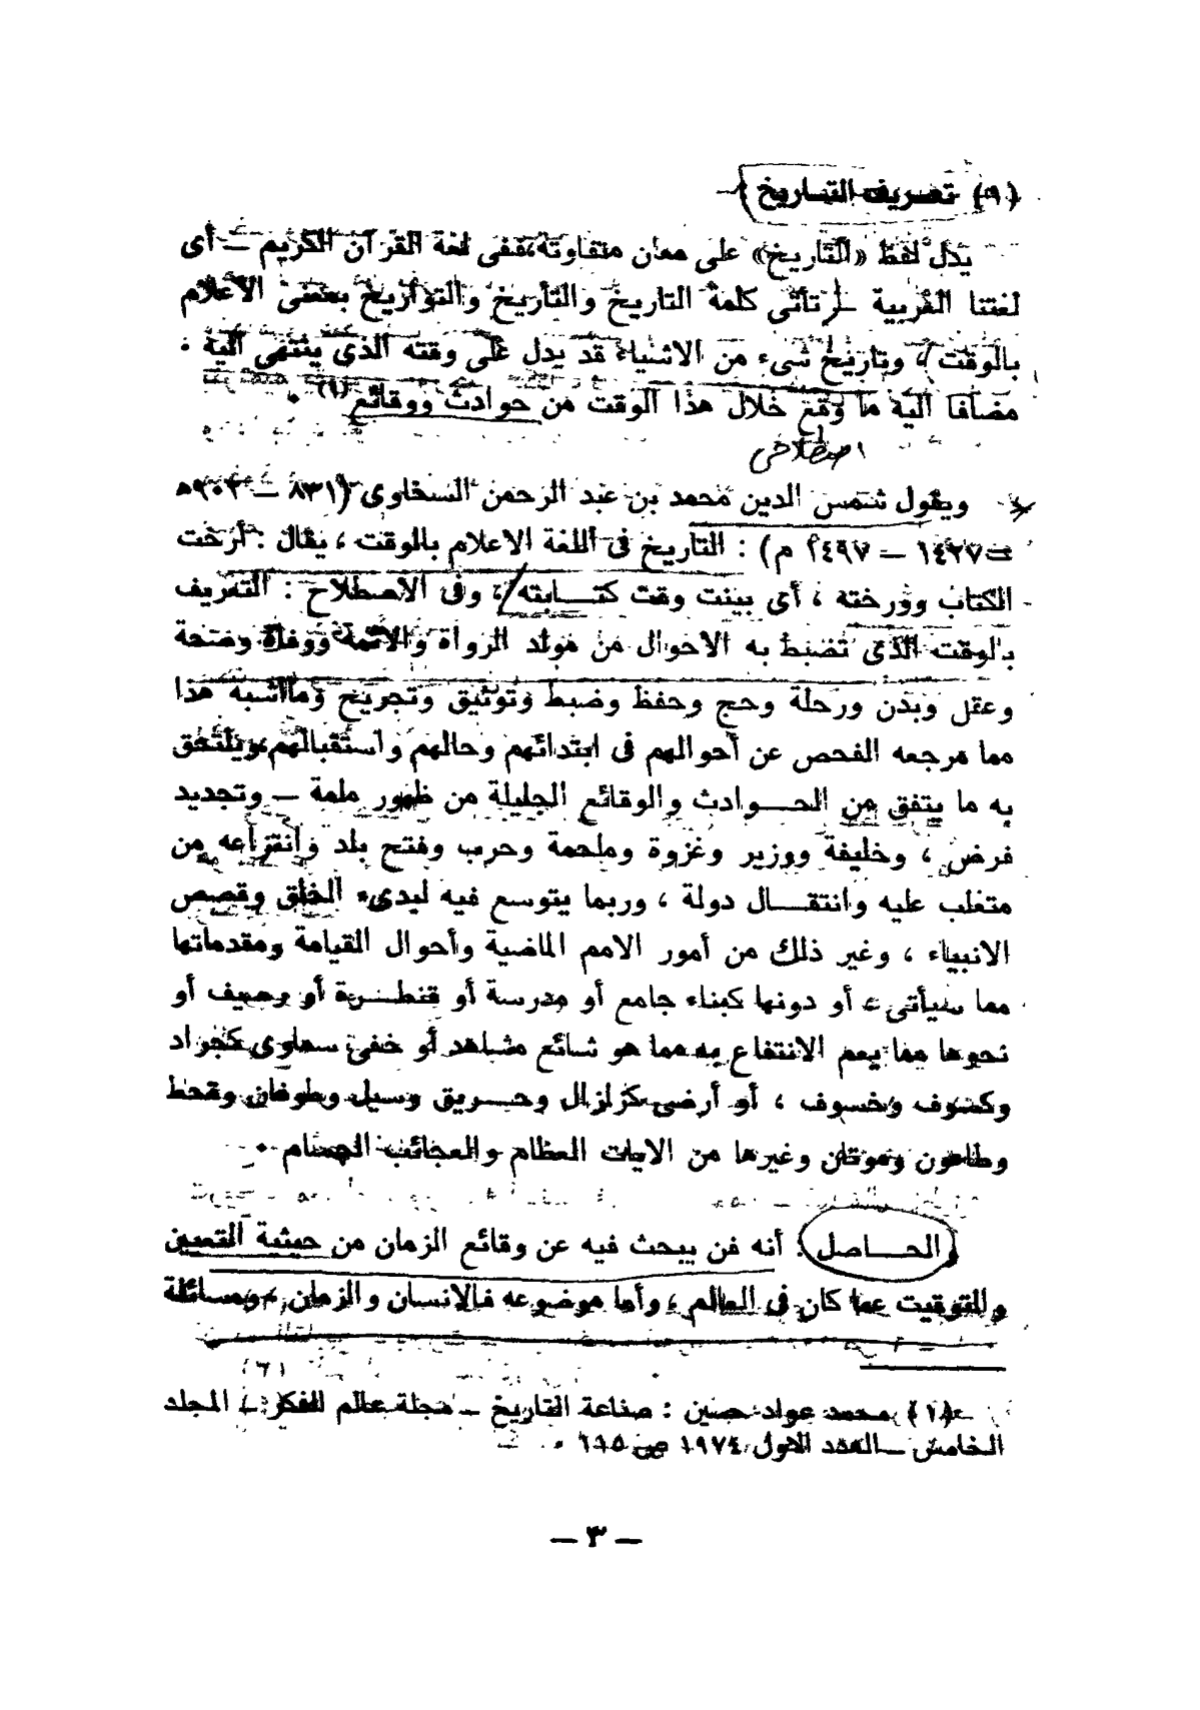 (١) تعريف التاريخ
يدل لفظ «التاريخ» على معان متفاوتة، ففى لغة القرآن الكريم — أى
لغتنا العربية — تأتى كلمة التاريخ والتأريخ والتواريخ بمعنى الاعلام
بالوقت، وتاريخ شىء من الاشياء قد يدل على وقته الذى ينتهى اليه ٠
مضافا اليه ما وقع خلال هذا الوقت من حوادث ووقائع (١) ٠
اصطلاحى
ويقول شمس الدين محمد بن عبد الرحمن السخاوى (٨٣١ — ٩٠٢ھ
= ١٤٢٧ — ١٤٩٧ م) : التاريخ فى اللغة الاعلام بالوقت ، يقال : أرخت
الكتاب وورخته ، أى بينت وقت كتـــابته ، وفى الاصطلاح : التعريف
بالوقت الذى تضبط به الاحوال من مولد الرواة والائمة ووفاة وصحة
وعقل وبدن ورحلة وحج وحفظ وضبط وتوثيق وتجريح وما أشبه هذا
مما مرجعه الفحص عن أحوالهم فى ابتدائهم وحالهم واستقبالهم، ويلتحق
به ما يتفق من الحـــوادث والوقائع الجليلة من ظهور ملمة — وتجديد
فرض ، وخليفة ووزير وغزوة وملحمة وحرب وفتح بلد وانتزاعه من
متغلب عليه وانتقـــال دولة ، وربما يتوسع فيه لبدىء الخلق وقصص
الانبياء ، وغير ذلك من أمور الامم الماضية وأحوال القيامة ومقدماتها
مما سيأتى ، أو دونها كبناء جامع أو مدرسة أو قنطـــرة أو رصيف أو
نحوها مما يعم الانتفاع به مما هو شائع مشاهد أو خفى سماوى كجراد
وكسوف وخسوف ، أو أرضى كزلزال وحـــريق وسيل وطوفان وقحط
وطاعون وموتان وغيرها من الايات العظام والعجائب الجسام ٠
الحـــاصل : أنه فن يبحث فيه عن وقائع الزمان من حيثية التعيين
والتوقيت عما كان فى العالم ، وأما موضوعه فالانسان والزمان ، ومسائلة
(١) محمد عواد حسين : صناعة التاريخ — مجلة عالم الفكر — المجلد
الخامس — العدد الاول ١٩٧٤ ص ١١٥ ٠
— ٣ —